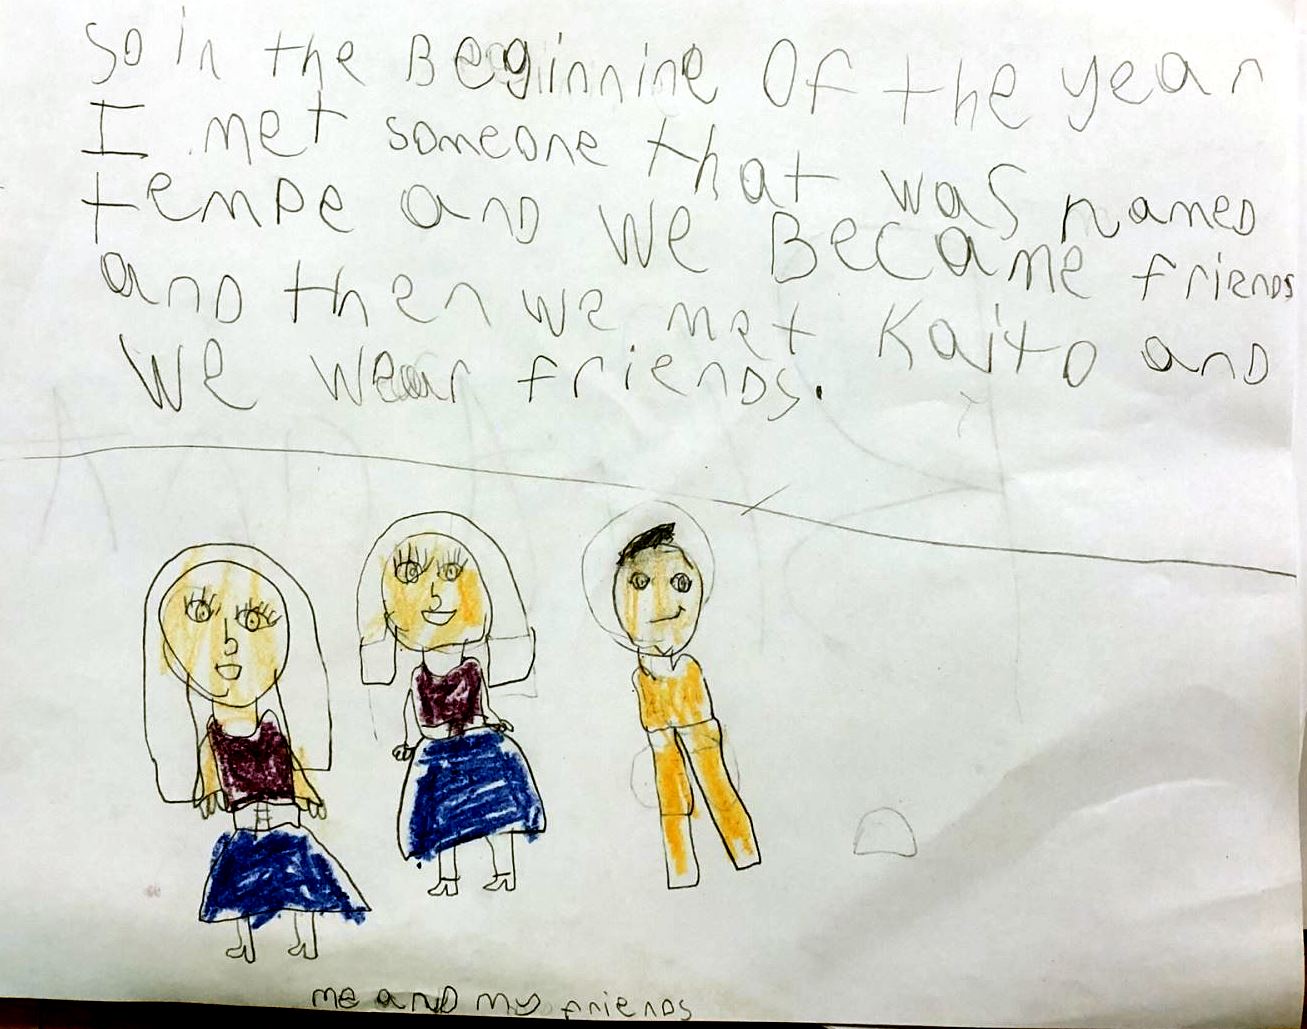 So in the Beginnine Of the year
I met someone that was named
tempe anD We Became frienDs
anD then we met Kaito anD
We wear frienDs.
me anD my frienDs